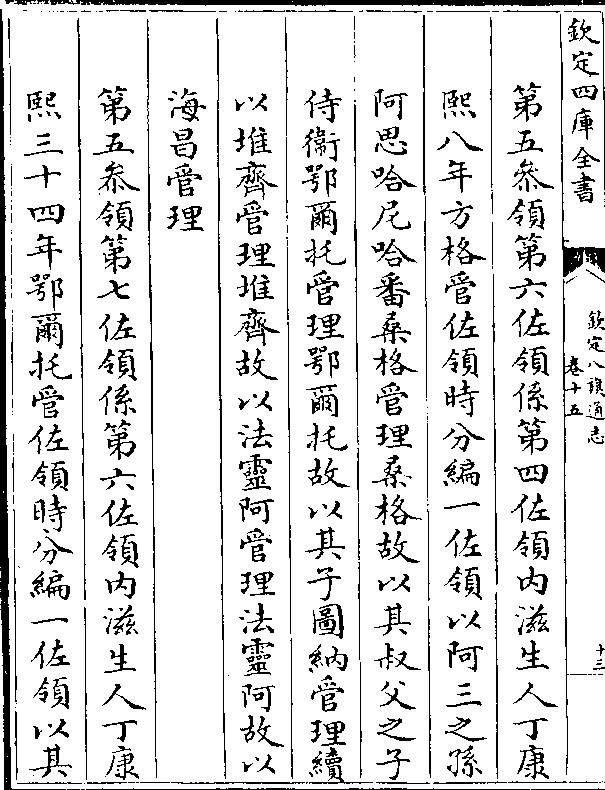 欽定四庫全書
欽定八旗通志
卷十五
十三
第五叅領第六佐領係第四佐領内滋生人丁康
熙八年方格管佐領時分編一佐領以阿三之孫
阿思哈尼哈番桑格管理桑格故以其叔父之子
侍衞鄂爾托管理鄂爾托故以其子圖納管理續
以堆齊管理堆齊故以法靈阿管理法靈阿故以
海昌管理
第五叅領第七佐領係第六佐領内滋生人丁康
熙三十四年鄂爾托管佐領時分編一佐領以其